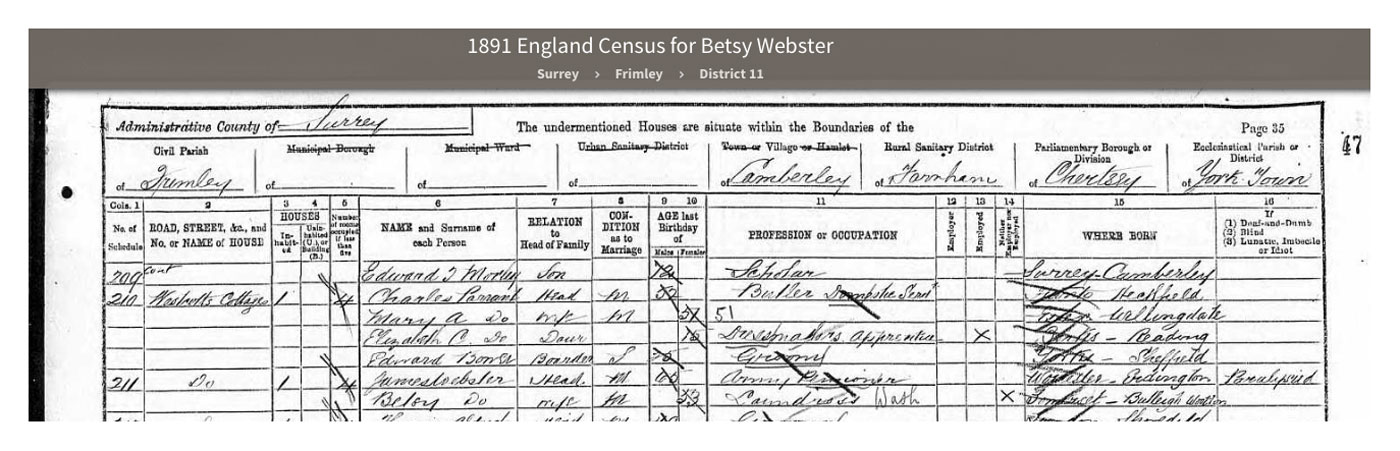 1891 England Census for Betsy Webster
Surrey > Frimley > District 11
Administrative County of Surrey The undermentioned Houses are situate within the Boundaries of the Page 35
47
Civil Parish Municipal Borough Municipal Ward Urban Sanitary District Town or Village or Hamlet Rural Sanitary District Parliamentary Borough or Division Ecclesiastical Parish or District
of Frimley of of of Camberley of Farnham of Chertsey of York Town
Cols. 1 2 3 4 5 6 7 8 9 10 11 12 13 14 15 16
No. of Schedule ROAD, STREET, &c., and No. or NAME of HOUSE HOUSES Inhabited Uninhabited (U.), or Building (B.) Number of rooms occupied if less than five NAME and Surname of each Person RELATION to Head of Family CONDITION as to Marriage AGE last Birthday of Males Females PROFESSION or OCCUPATION Employer Employed Neither Employer nor Employed WHERE BORN If (1) Deaf-and-Dumb (2) Blind (3) Lunatic, Imbecile or Idiot
209 cont Edward J Morley Son Scholar Surrey Camberley
210 Cottages 1 4 Charles Head M 52 Butler Domestic Servt Hants Heckfield
Mary A Do wife M 51 51
Elizabeth C Do Daur 15 Dressmakers Apprentice X Berks - Reading
Edward Boarder S Groom Yorks - Sheffield
211 Do 1 4 James Webster Head M Army Pensioner Paralysed
Betsy Do wife M 53 Laundress Wash X Somerset -